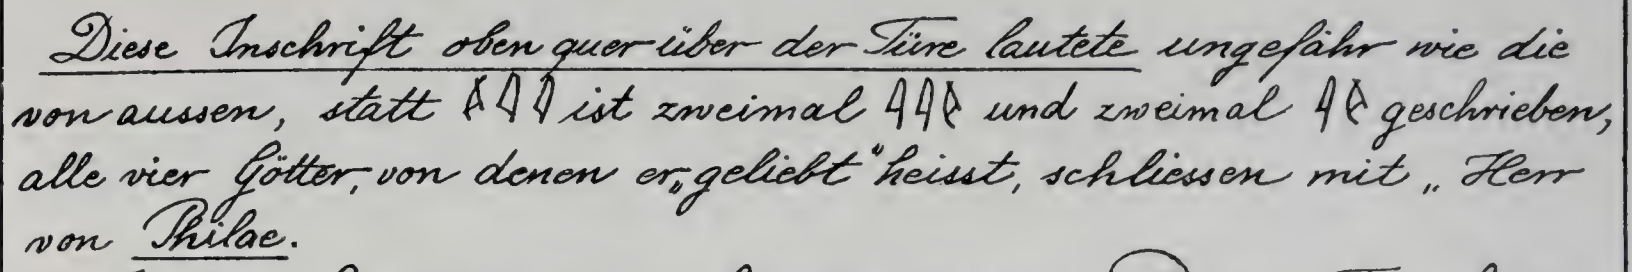 Diese Inschrift oben quer über der Türe lautete ungefähr wie die
von aussen, statt ist zweimal und zweimal geschrieben,
alle vier Götter, von denen er „geliebt" heisst, schliessen mit „Herr
von Philae.